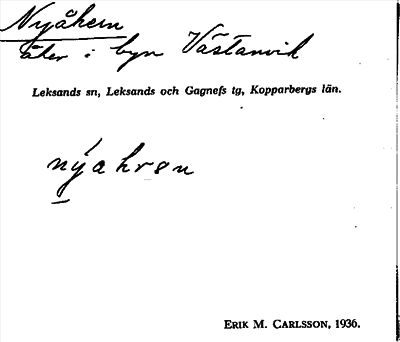 Nyåkern
åker i byn Västanvik
Leksands sn, Leksands och Gagnefs tg, Kopparbergs län.
ERIK M. CARLSSON, 1936.